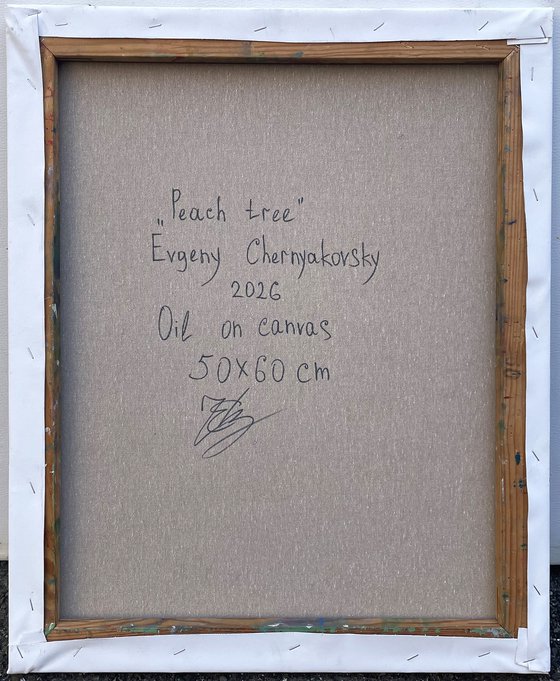 „Peach tree"
Evgeny Chernyakovsky
2026
Oil on canvas
50x60 cm